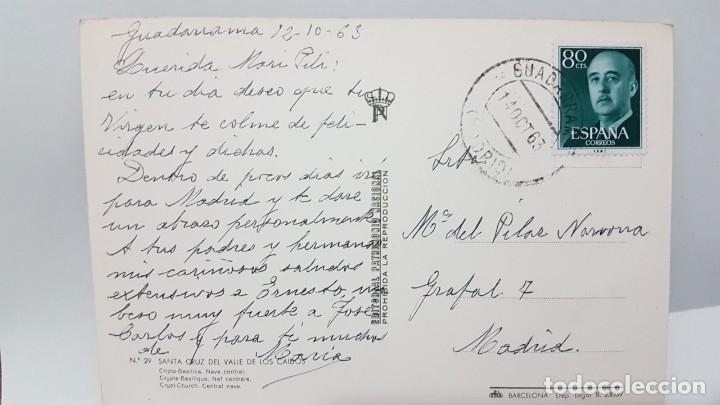 Guadarrama 12-10-63
Querida Mari Pili:
en tu dia deseo que tu
Virgen te colme de feli-
cidades y dichas.
Dentro de pocos dias iré
para Madrid y te daré
un abrazo personalmente
A tus padres y hermanos
mis cariñosos saludos
extensivos a Ernesto, un
beso muy fuerte a José
Carlos y para ti muchos
de María
Nº 29 SANTA CRUZ DEL VALLE DE LOS CAIDOS
Cripta-Basílica. Nave central.
Crypte-Basilique. Nef centrale.
Crypt-Church. Central nave.
EDITORIAL PATRIMONIO NACIONAL
PROHIBIDA LA REPRODUCCION
GUADARRAMA
14 OCT 63
(MADRID)
80 CTS
ESPAÑA
CORREOS
Srta
Mª del Pilar
Grafal 7
Madrid.
BARCELONA Dep. Legal B.
todocoleccion